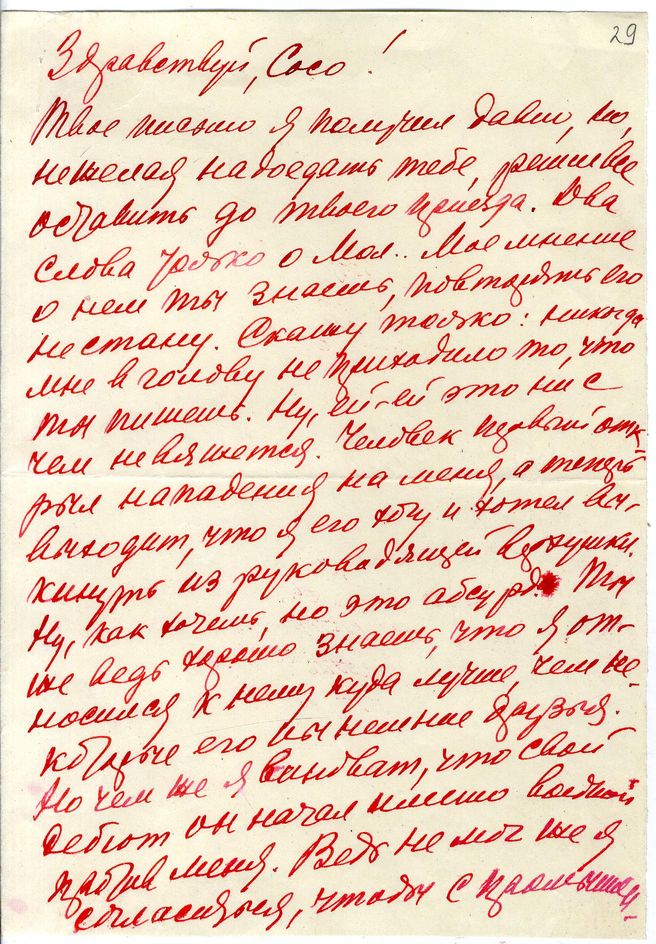 29
Здравствуй, Сосо!
Твое письмо я получил давно, но,
не желая надоедать тебе, решил все
оставить до твоего приезда. Два
слова только о Мол.. Мое мнение
о нем ты знаешь, повторять его
не стану. Скажу только: никогда
мне в голову не приходило то, что
ты пишешь. Ну, ей-ей это ни с
чем не вяжется. Человек первый отк-
рыл нападения на меня, а теперь
выходит, что я его хочу и хотел вы-
кинуть из руководящей верхушки.
Ну, как хочешь, но это абсурд. Ты
же ведь хорошо знаешь, что я от-
носился к нему куда лучше, чем не-
которые его нынешние друзья.
Но чем же я виноват, что свой
дебют он начал именно войной
против меня. Ведь не мог же я
согласиться, чтобы с